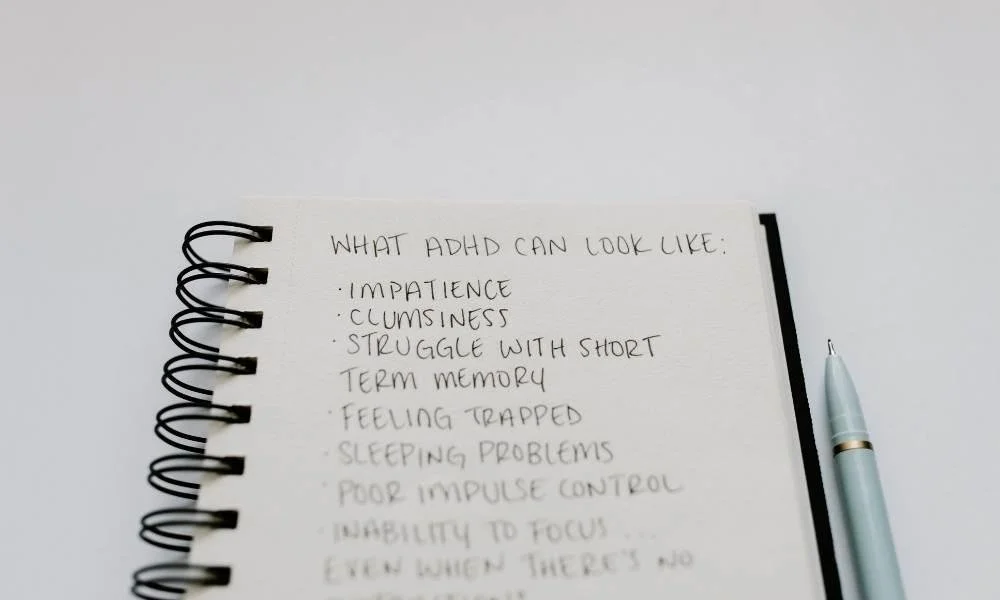 WHAT ADHD CAN LOOK LIKE:
·IMPATIENCE
·CLUMSINESS
·STRUGGLE WITH SHORT
TERM MEMORY
·FEELING TRAPPED
·SLEEPING PROBLEMS
·POOR IMPULSE CONTROL
·INABILITY TO FOCUS ...
EVEN WHEN THERE'S NO